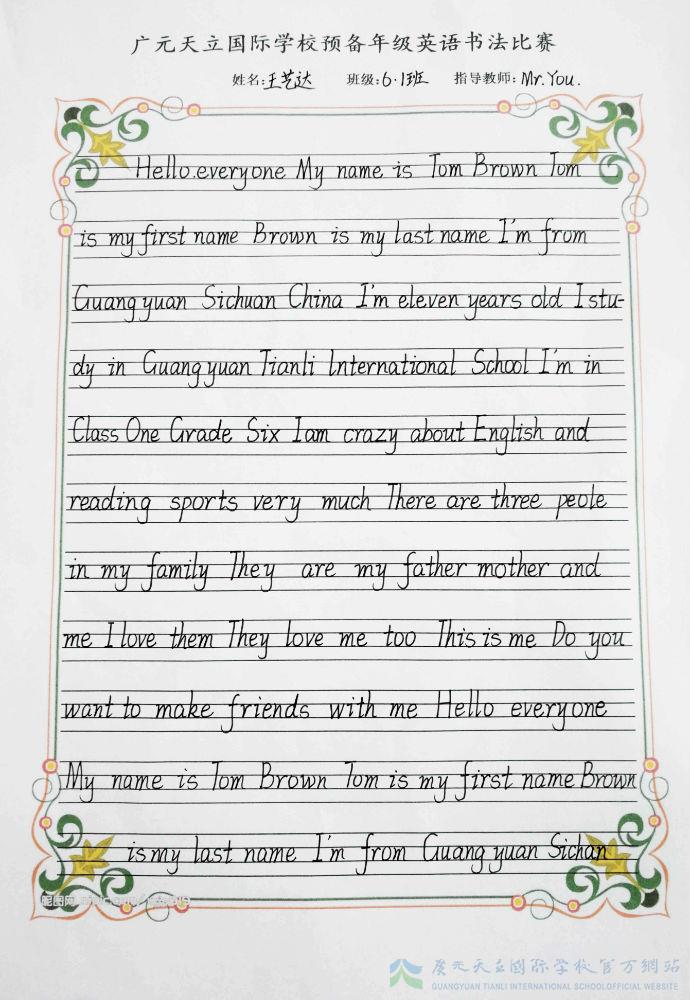 广元天立国际学校预备年级英语书法比赛
姓名:王艺达 班级:6·1班 指导教师:Mr.You.
Hello.everyone My name is Tom Brown Tom
is my first name Brown is my last name I'm from
Guang yuan Sichuan China I'm eleven years old I stu-
dy in Guang yuan Tianli International School I'm in
Class One Grade Six I am crazy about English and
reading sports very much There are three peole
in my family They are my father mother and
me I love them They love me too This is me Do you
want to make friends with me Hello everyone
My name is Tom Brown Tom is my first name Brown
is my last name I'm from Guang yuan Sichan
昵图网
广元天立國际学校官方網站
GUANGYUAN TIANLI INTERNATIONAL SCHOOLOFFICIAL WEBSITE